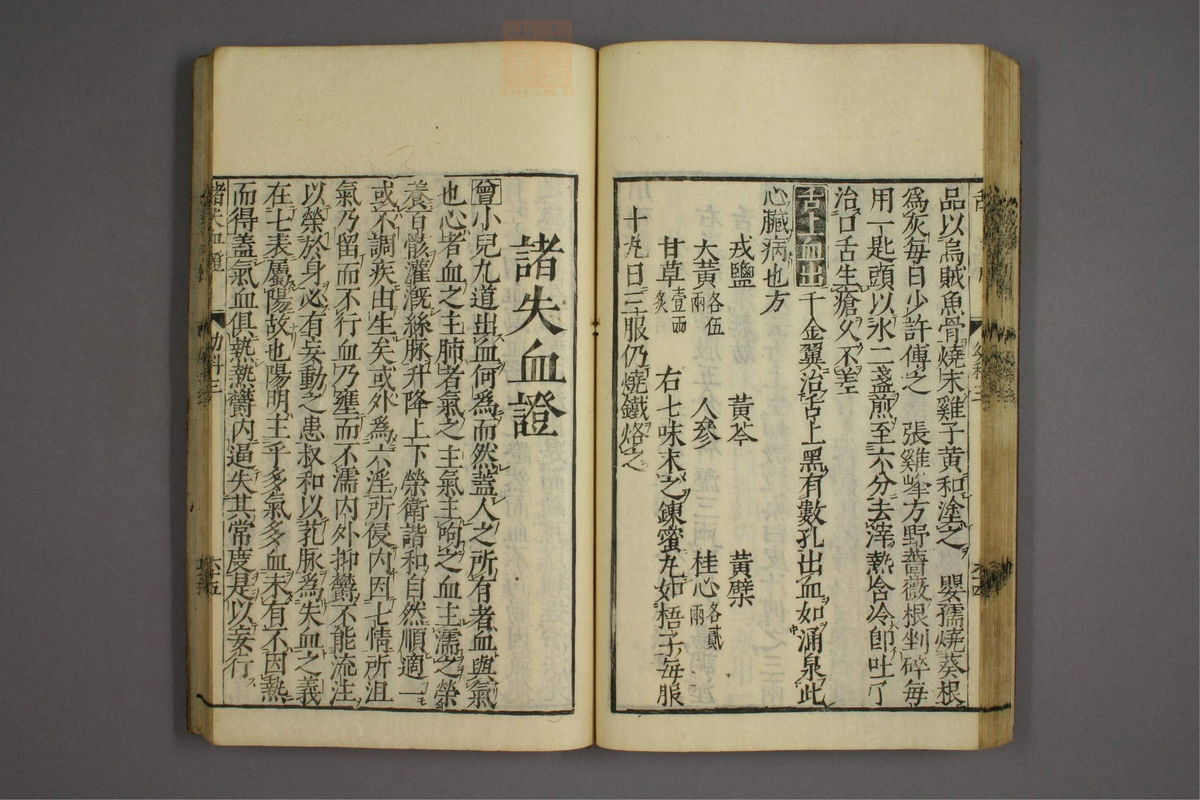 品以烏賊魚骨燒末雞子黄和塗之 嬰孺燒葵根
爲灰毎日少許傅之 張雞峰方野薔薇根剉碎毎
用一匙頭以水二盞煎至六分去滓熱含冷卽吐了
治口舌生瘡久不差
舌上血出 千金翼治舌上黑有數孔出血如涌泉此
心臟病也方
戎鹽 黄芩 黄檗
大黄各伍兩 人參 桂心各貳兩
甘草壹兩炙 右七味末之錬蜜丸如梧子毎服
十丸日三服仍燒鐵烙之
諸失血證
曾小兒九道出血何為而然蓋人之所有者血與氣
也心者血之主肺者氣之主氣主呴之血主濡之榮
養百骸灌漑絲脉升降上下榮衛諧和自然順適一
或不調疾由生矣或外為六淫所侵内因七情所沮
氣乃留而不行血乃壅而不濡内外抑鬱不能流注
以榮於身必有妄動之患叔和以芤脉為失血之義
在七表屬陽故也陽明主乎多氣多血未有不因熱
而得蓋氣血俱熱熱鬱内逼失其常度是以妄行
諸失血證 幼科三 六十五